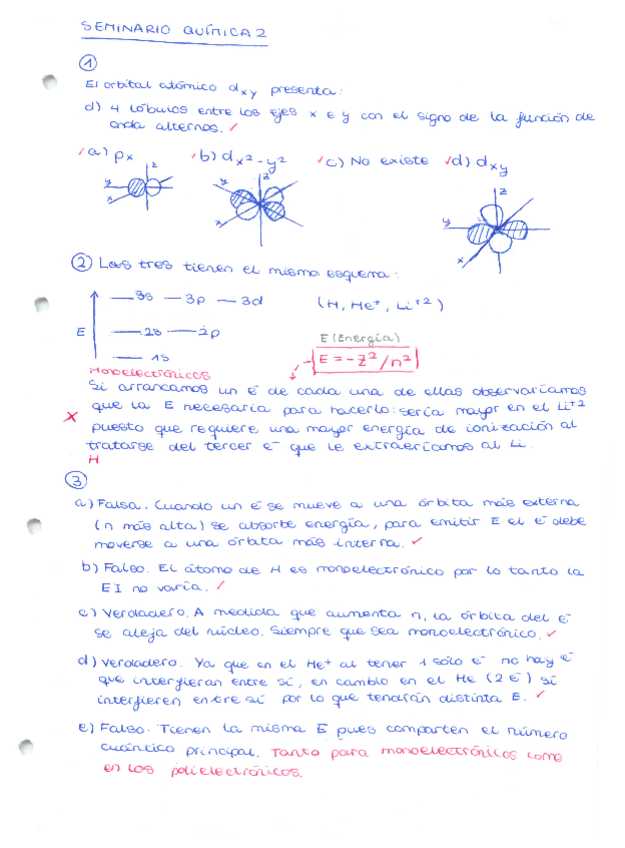 SEMINARIO QUÍMICA 2
1
El orbital atómico dxy presenta:
d) 4 lóbulos entre los ejes x e y con el signo de la función de
onda alternos. ✓
✓a) px ✓b) dx²-y² ✓c) No existe ✓d) dxy
z z z
y y y
x x x
2 Las tres tienen el mismo esquema:
3s 3p 3d (H, He⁺, Li⁺²)
E 2s 2p E (Energía)
1s E = -Z²/n²
Monoelectrónicos
Si arrancamos un e⁻ de cada una de ellas observaríamos
que la E necesaria para hacerlo: sería mayor en el Li⁺²
X puesto que requiere una mayor energía de ionización al
tratarse del tercer e⁻ que le extraeríamos al Li.
H
3
a) Falsa. Cuando un e⁻ se mueve a una órbita más externa
(n más alta) se absorbe energía, para emitir E el e⁻ debe
moverse a una órbita más interna. ✓
b) Falso. El átomo de H es monoelectrónico por lo tanto la
EI no varía. ✓
c) Verdadero. A medida que aumenta n, la órbita del e⁻
se aleja del núcleo. Siempre que sea monoelectrónico. ✓
d) Verdadero. Ya que en el He⁺ al tener 1 sólo e⁻ no hay e⁻
que interfieran entre sí, en cambio en el He (2 e⁻) sí
interfieren entre sí por lo que tendrán distinta E. ✓
e) Falso. Tienen la misma E pues comparten el número
cuántico principal. Tanto para monoelectrónicos como
en los polielectrónicos.